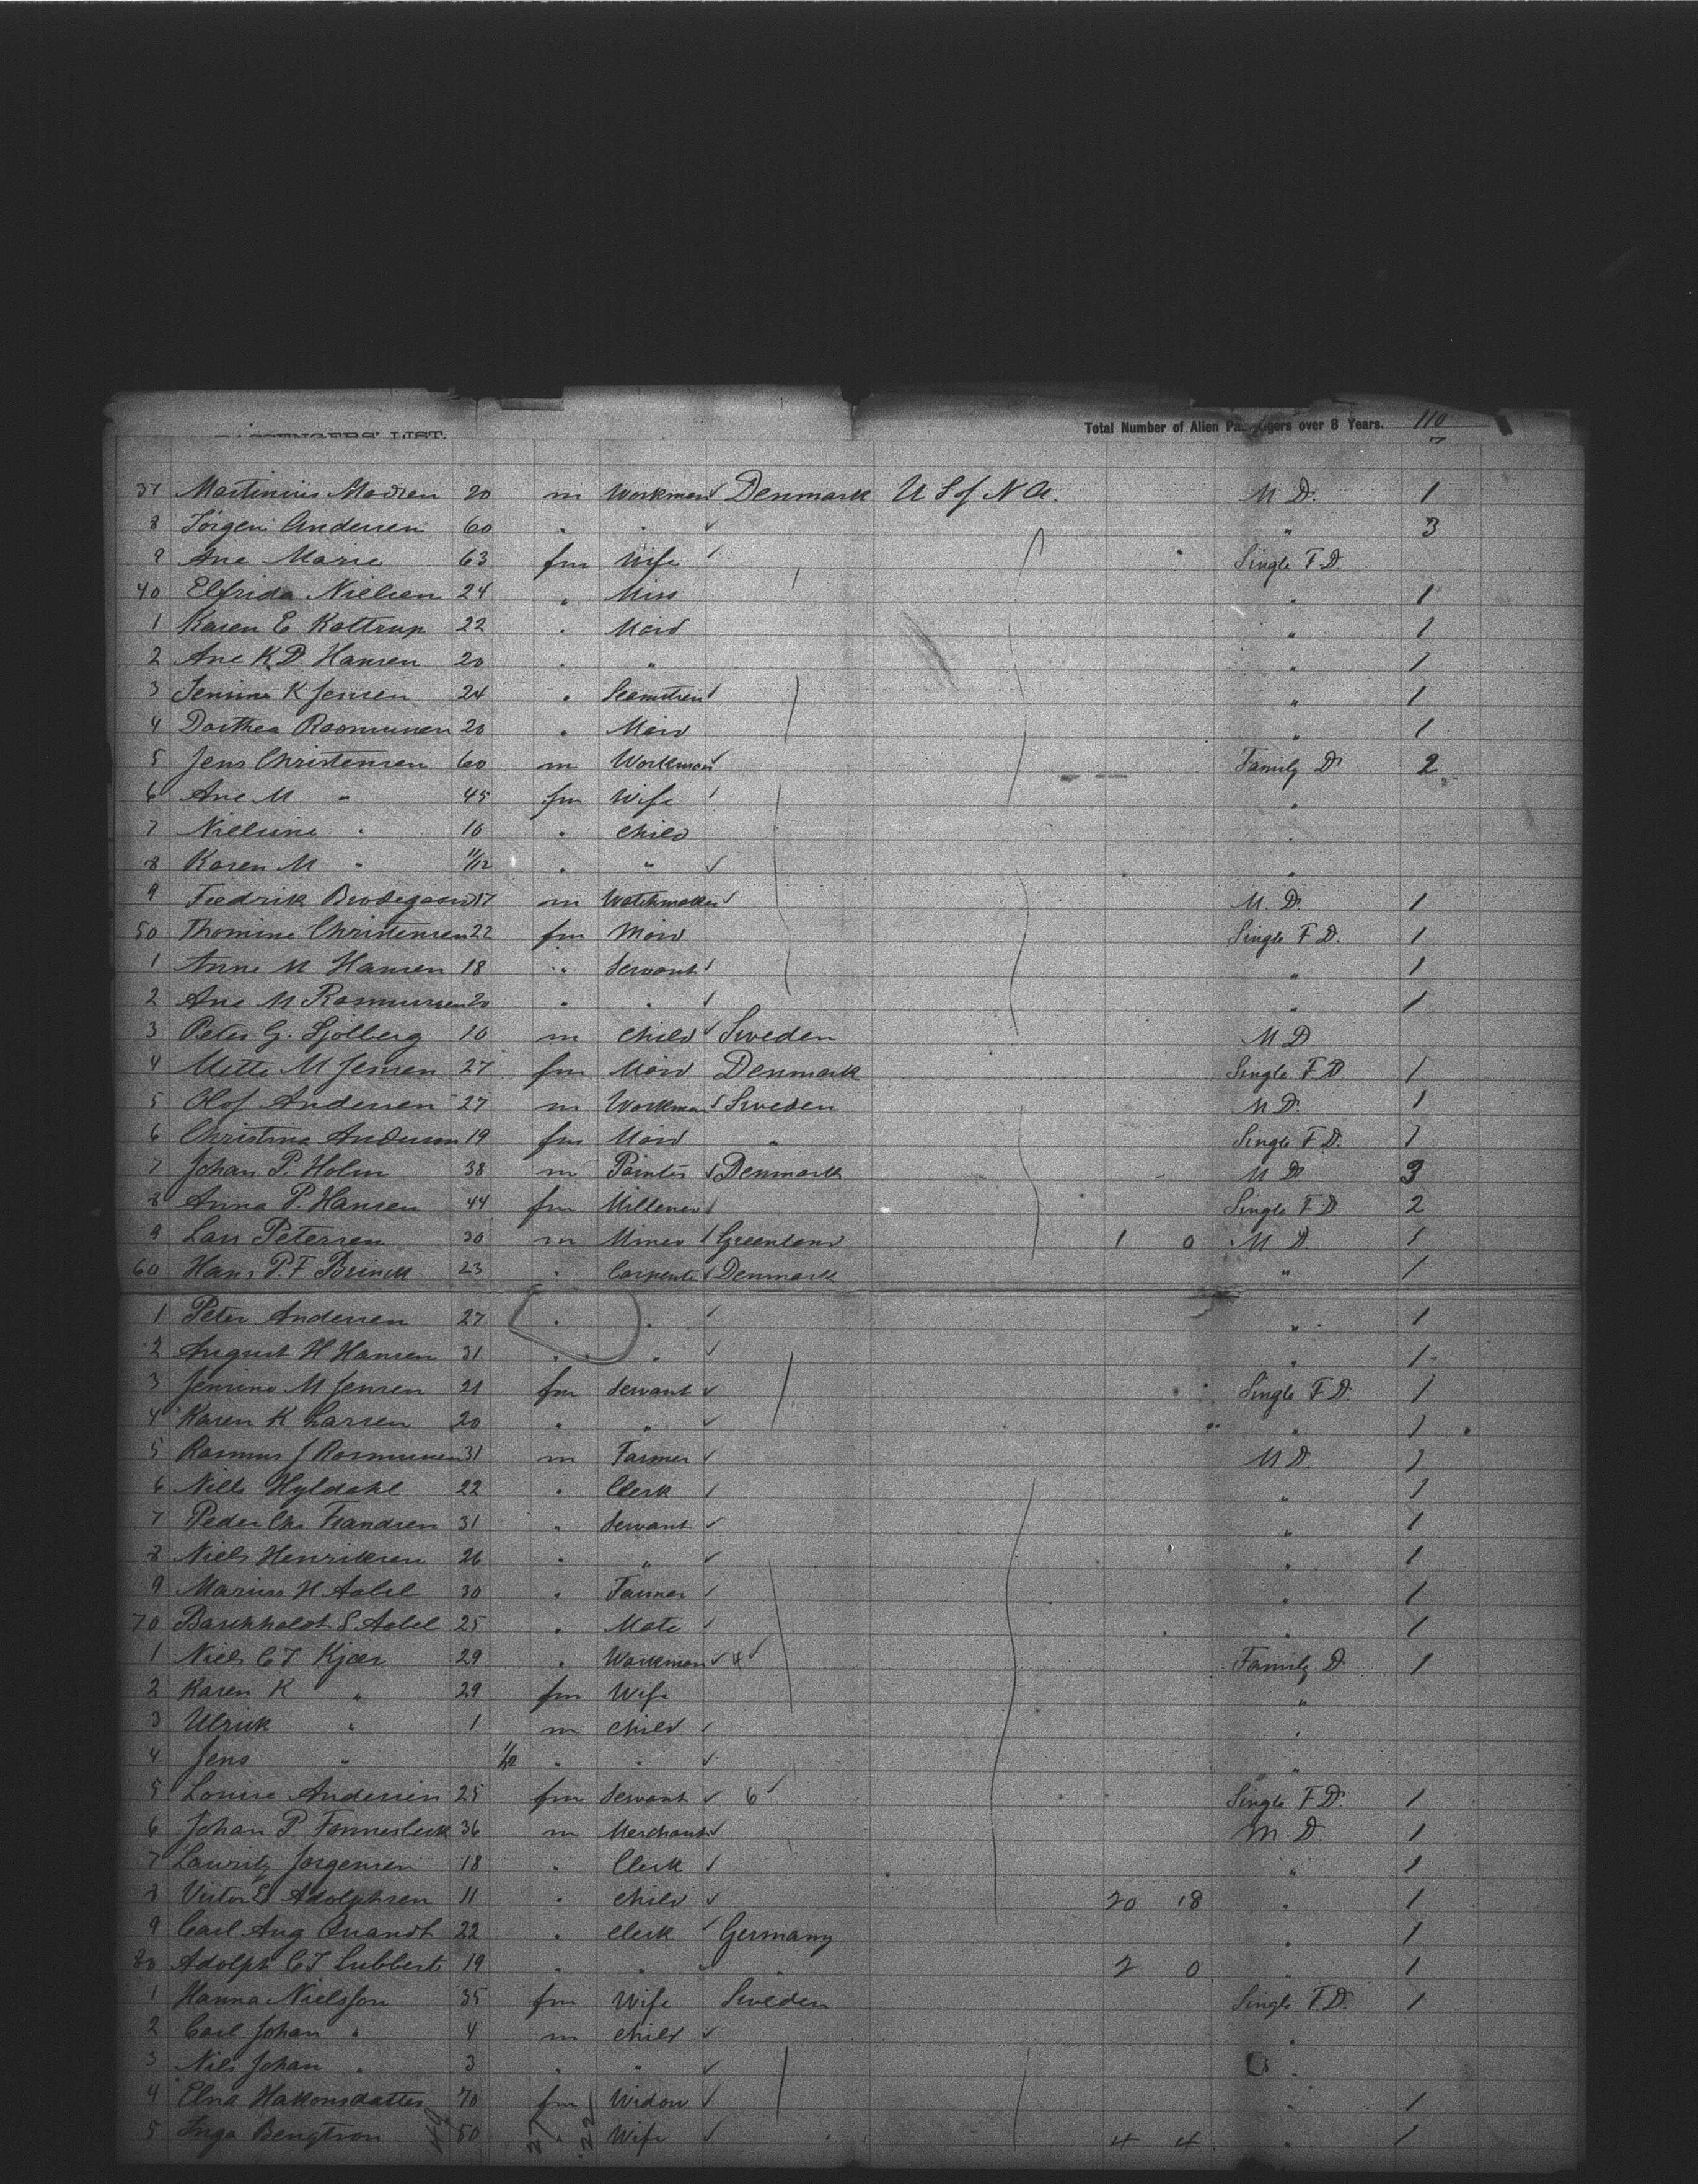 PASSENGERS' LIST.
Total Number of Alien Passengers over 8 Years. 110
37 Martinius Madsen 20 m Workman ✓ Denmark U S of N A. M D. 1
8 Jörgen Andersen 60 " " ✓ " 3
9 Ane Marie 63 fm Wife Single F D.
40 Elfrida Nielsen 24 " Miss " 1
1 Karen E Kattrup 22 " Maid " 1
2 Ane K D. Hansen 20 " " " 1
3 Jensina K Jensen 24 " Seamstress " 1
4 Dorthea Rasmussen 20 " Maid " 1
5 Jens Christensen 60 m Workman ✓ Family D 2
6 Ane M " 45 fm Wife "
7 Nielsine " 10 " Child "
8 Karen M " 11/12 " " ✓ "
9 Fredrik 17 m Watchmaker ✓ M. D. 1
50 Thomine Christensen 22 fm Maid Single F D. 1
1 Anne M Hansen 18 " Servant " 1
2 Ane M Rasmussen 20 " " ✓ " 1
3 Peter G. Sjölberg 10 m Child ✓ Sweden M D
4 Mette M Jensen 27 fm Maid Denmark Single F D 1
5 Olof Andersen 27 m Workman Sweden M D. 1
6 Christina Anderson 19 fm Maid " Single F D. 1
7 Johan P. Holm 38 m Painter ✓ Denmark M D 3
8 Anna P. Hansen 44 fm Milliner Single F D 2
9 Lars Petersen 30 m Miner Greenland 1 0 M D. 1
60 Hans P. F Brinck 23 " Carpenter ✓ Denmark " 1
1 Peter Andersen 27 " " " 1
2 August H Hansen 31 " " ✓ " 1
3 Jensine M Jensen 21 fm Servant ✓ Single F D. 1
4 Karen K Larsen 20 " " ✓ " 1
5 Rasmus J Rasmussen 31 m Farmer ✓ M D. 1
6 Niels Hyldahl 22 " Clerk " 1
7 Peder Chr Frandsen 31 " Servant ✓ " 1
8 Niels Henriksen 26 " " ✓ " 1
9 Marius H Aabel 30 " Farmer " 1
70 S. Aabel 25 " Mate " 1
1 Niels C F Kjær 29 " Workman ✓ 4 ✓ Family D. 1
2 Karen K " 29 fm Wife "
3 Ulrick " 1 m Child "
4 Jens " 1/12 " " ✓ "
5 Louise Andersen 25 fm Servant ✓ 6 ✓ Single F D. 1
6 Johan P. Fonnesbeck 36 m Merchant ✓ M. D. 1
7 Lauritz Jorgensen 18 " Clerk " 1
8 Victor E Adolphsen 11 " Child ✓ 20 18 " 1
9 Carl Aug Quandt 22 " Clerk ✓ Germany " 1
80 Adolph C F Lubbert 19 " " ✓ " 2 0 " 1
1 Hanna Nielsson 35 fm Wife Sweden Single F. D. 1
2 Carl Johan " 4 m Child ✓ "
3 Nils Johan " 3 " " ✓ "
4 Elna Hakonsdatter 70 fm Widow ✓ " 1
5 Inga Bengtson 50 " Wife ✓ 4 4 " 1
27 22